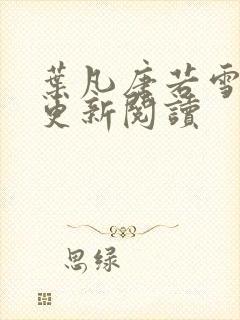 葉凡唐若雪
更新閱讀
思绿